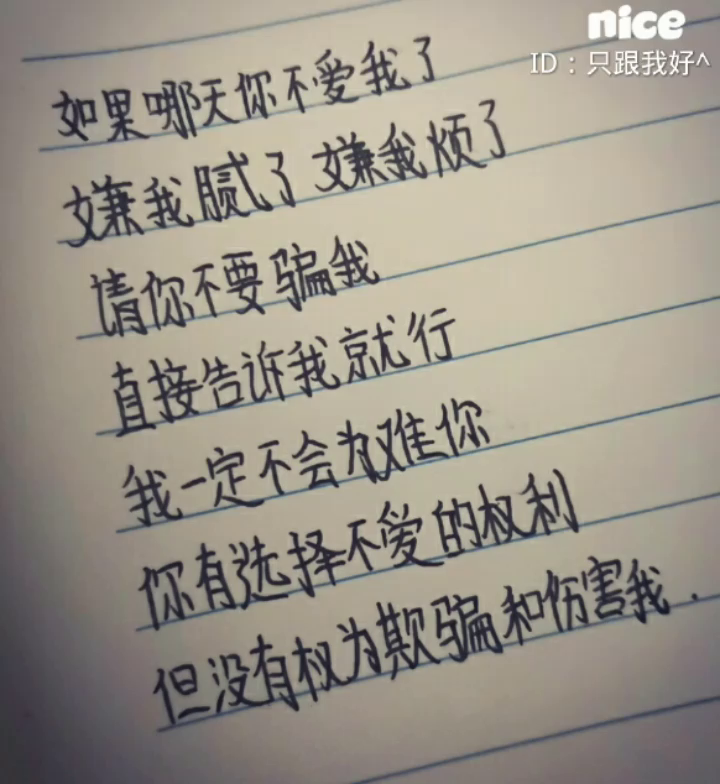 nice
ID：只跟我好^
如果哪天你不爱我了
嫌我腻了 嫌我烦了
请你不要骗我
直接告诉我就行
我一定不会为难你
你有选择不爱的权利
但没有权为欺骗和伤害我.